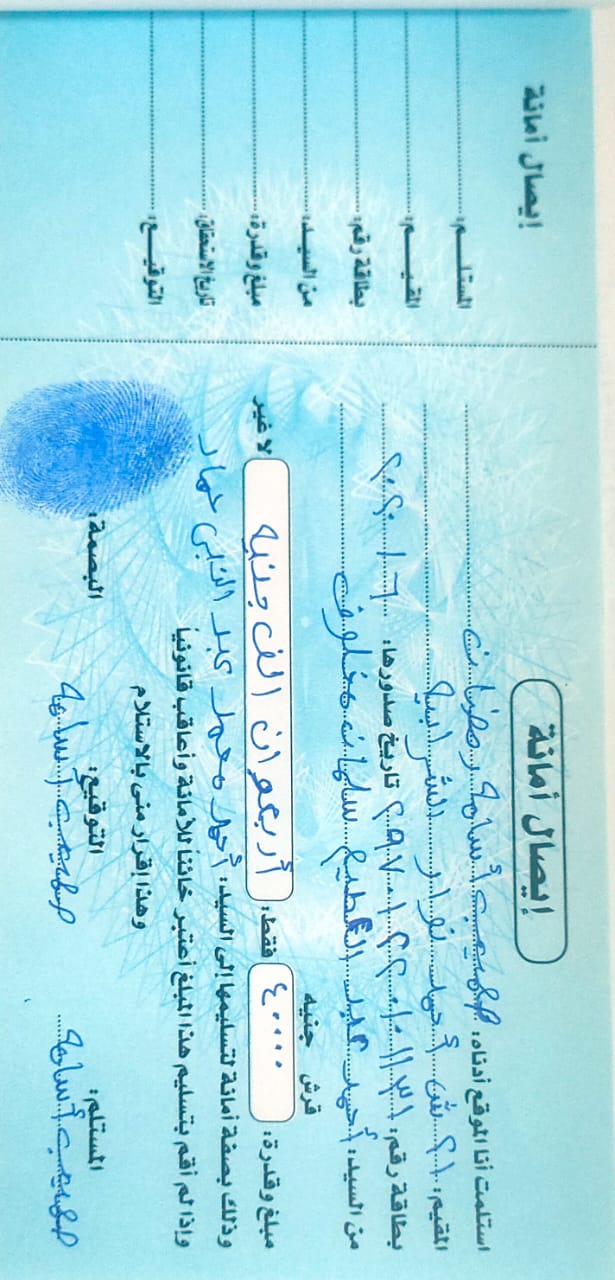 إيصال أمانة
استلمت أنا الموقع أدناه: صهيب أسامة رمضان
المقيم: ٢١ ش أحمد نوار الشرابية
بطاقة رقم: ٢٩٧٠١٢٢٠١٠١١٣١ تاريخ صدورها: ٢٠٢٠١٦
من السيد: أحمد عبد العظيم سليمان مخلوف
قرش جنيه
مبلغ وقدرة: ٤٠٠٠٠ فقط: أربعون الف جنيه لا غير
وذلك بصفة أمانة لتسليمها إلى السيد: أحمد محمد عبد النبى
وإذا لم أقم بتسليم هذا المبلغ أعتبر خائناً للأمانة وأعاقب قانونياً
وهذا إقرار منى بالاستلام
المستلم: التوقيع: البصمة:
صهيب أسامة صهيب أسامة
إيصال أمانة
المستلم:
المقيم:
بطاقة رقم:
من السيد:
مبلغ وقدرة:
تاريخ الاستحقاق:
التوقيع: